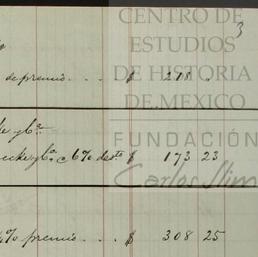 CENTRO DE
ESTUDIOS
DE HISTORIA
DE MEXICO
FUNDACIÓN
Carlos Slim
3
de premio. . . $ 218 .
y Ca.
y Ca. c 6% dsto $ 173 23
% premio. . . . $ 308 25